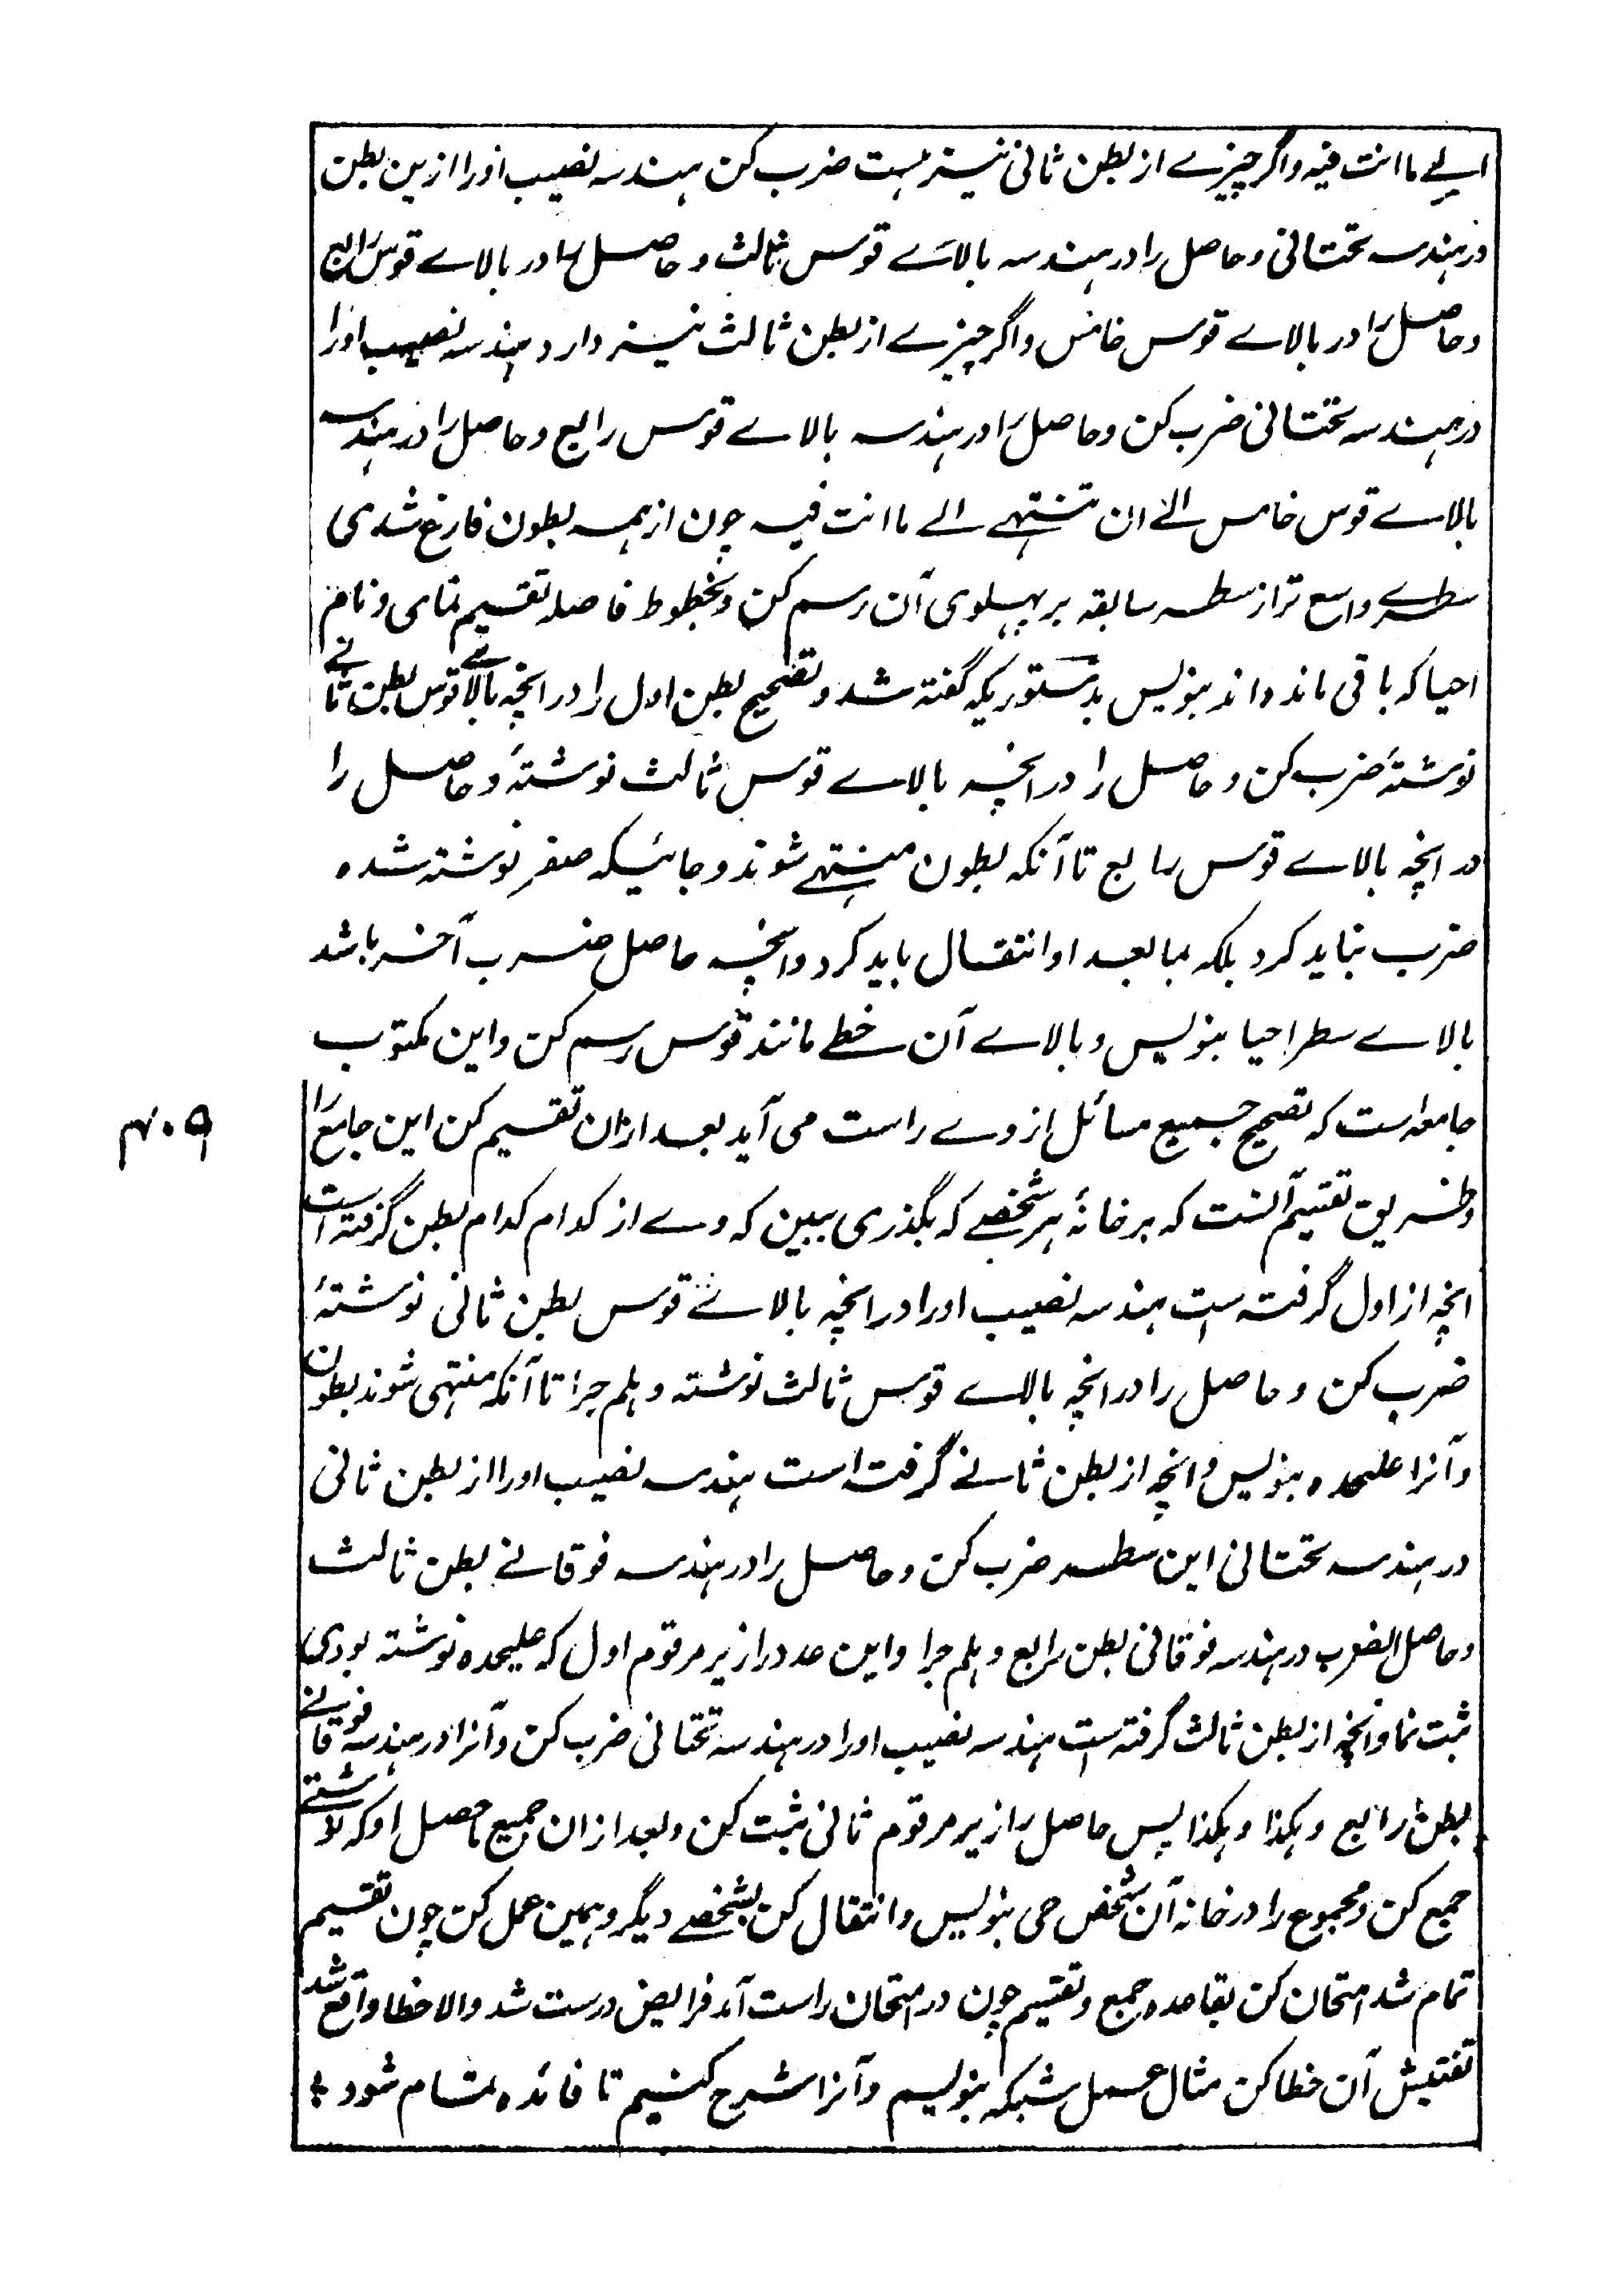 الے ما انت فیه و اگر چیزے از بطن ثانی نیز هست ضرب کن هندسه نصیب اورا ازین بطن
در هندسه تحتانی و حاصل را در هندسه بالاے قوس ثالث و حاصل را در بالاے قوس رابع
و حاصل را در بالاے قوس خامس و اگر چیزے از بطن ثالث نیز دارد هندسه نصیب اورا
در هندسه تحتانی ضرب کن و حاصل را در هندسه بالاے قوس رابع و حاصل را در هندسه
بالاے قوس خامس الے ان تنتهے الے ما انت فیه چون از همه بطون فارغ شدی
سطرے واسع تر از سطر سابقه بر پهلوی آن رسم کن و بخطوط فاصله تقسیم نمای و نام
احیا که باقی مانده اند بنویس بدستوریکه گفته شد و تصحیح بطن اول را در انچه بالاے قوس بطن ثانے
نوشتۂ ضرب کن و حاصل را در انچه بالاے قوس ثالث نوشتۂ و حاصل را
در انچه بالاے قوس رابع تا آنکه بطون منتهے شوند و جائیکه صفر نوشته شده
ضرب نباید کرد بلکه بما بعد او انتقال باید کرد و انچه حاصل ضرب آخر باشد
بالاے سطر احیا بنویس و بالاے آن خطے مانند قوس رسم کن و این مکتوب
جامعه است که تصحیح جمیع مسائل از وے راست می آید بعد ازان تقسیم کن این جامع را
۴۰۹
و طریق تقسیم آنست که بر خانۂ هر شخصے که بگذری ببین که وے از کدام کدام بطن گرفته است
انچه از اول گرفته است هندسه نصیب اورا در انچه بالاے قوس بطن ثانی نوشتۂ
ضرب کن و حاصل را در انچه بالاے قوس ثالث نوشته و هلم جرا تا آنکه منتهی شوند بطون
و آنرا علیحده بنویس و انچه از بطن ثانے گرفته است هندسه نصیب اورا از بطن ثانی
در هندسه تحتانی این سطر ضرب کن و حاصل را در هندسه فوقانے بطن ثالث
و حاصل الضرب در هندسه فوقانی بطن رابع و هلم جرا و این عدد را زیر مرقوم اول که علیحده نوشته بودی
ثبت نما و انچه از بطن ثالث گرفته است هندسه نصیب اورا در هندسه تحتانی ضرب کن و آنرا در هندسه فوقانے
بطن رابع و هکذا و هکذا پس حاصل را زیر مرقوم ثانی ثبت کن و بعد ازان جمیع حاصل او که نوشتے
جمع کن و مجموع را در خانه آن شخص حی بنویس و انتقال کن بشخصے دیگر و همین عمل کن چون تقسیم
تمام شد امتحان کن بقاعده جمع و تقسیم چون در امتحان راست آمد فرایض درست شد و الا خطا واقع شد
تفتیش آن خطا کن مثال عمل شبکه بنویسم و آنرا شرح کنیم تا فائده تمام شود